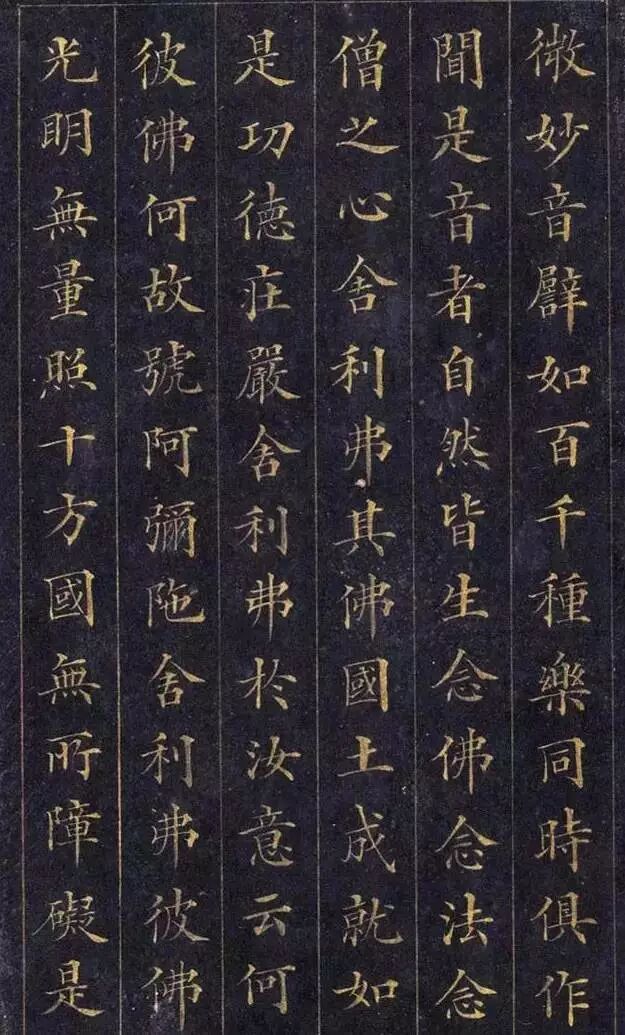 微妙音譬如百千種樂同時俱作
聞是音者自然皆生念佛念法念
僧之心舍利弗其佛國土成就如
是功德莊嚴舍利弗於汝意云何
彼佛何故號阿彌陁舍利弗彼佛
光明無量照十方國無所障礙是